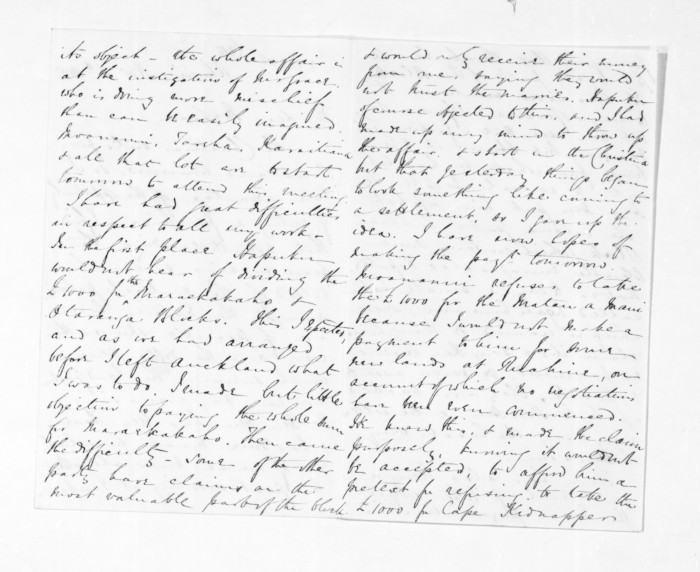 its object - the whole affair is
at the instigation of Mr Grace,
who is doing more mischief
than can be easily imagined.
Moananui, Tareha, Karaitiana
& all that lot are to start
tomorrow to attend this meeting.
I have had great difficulties
in respect to all my work -
In the first place Hapuku
would not hear of dividing the
£1000 for the Maraekakaho &
Otaranga Blocks. This I expected,
and as we had arranged
before I left Auckland what
I was to do, I made but little
objection to paying the whole sum
for Maraekakaho. Then came
the difficulty - some of the other
party have claims on the
most valuable part of the block
& would only receive their money
from me, saying they would
not trust the maories. Hapuku
of course objected to this, and I had
made up my mind to throw up
the affair & start in the Christina
but that yesterday things began
to look something like coming to
a settlement, so I gave up the
idea. I have now hopes of
making the payt tomorrow.
Moananui refuses to take
the £1000 for the Matau a Maui
because I would not make a
payment to him for some
new lands at Ruahine, on
account of which no negotiations
have ever even commenced.
He knew this, & made the claim
purposely, knowing it would not
be accepted, to afford him a
pretext for refusing to take the
£1000 for Cape Kidnappers